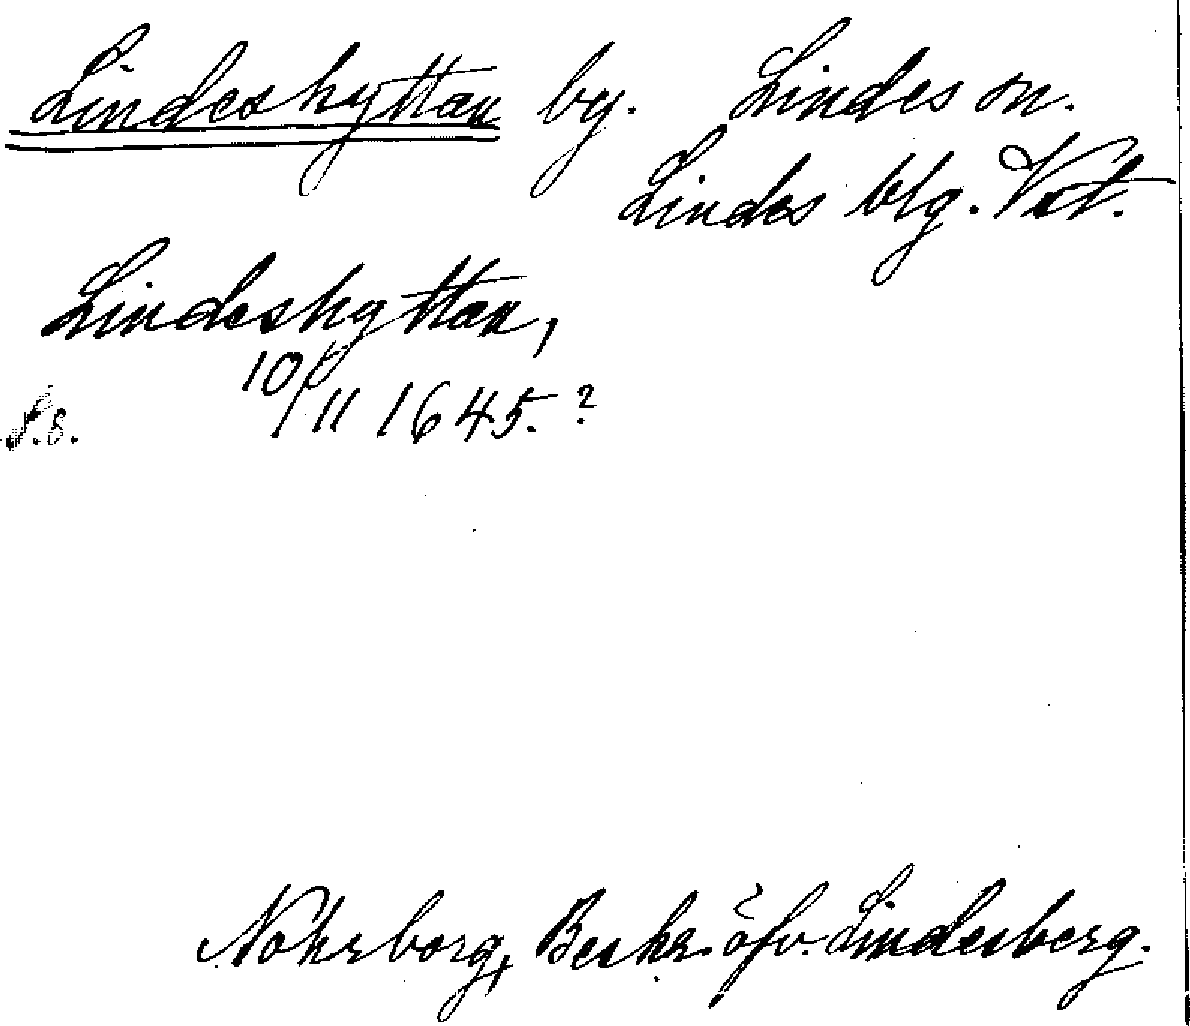 Lindeshyttan by. Lindes sn.
Lindes blg. Vstl.
Lindeshyttan,
10/11 1645.?
S. 8.
Nohrborg, Beskr. öfv. Lindesberg.